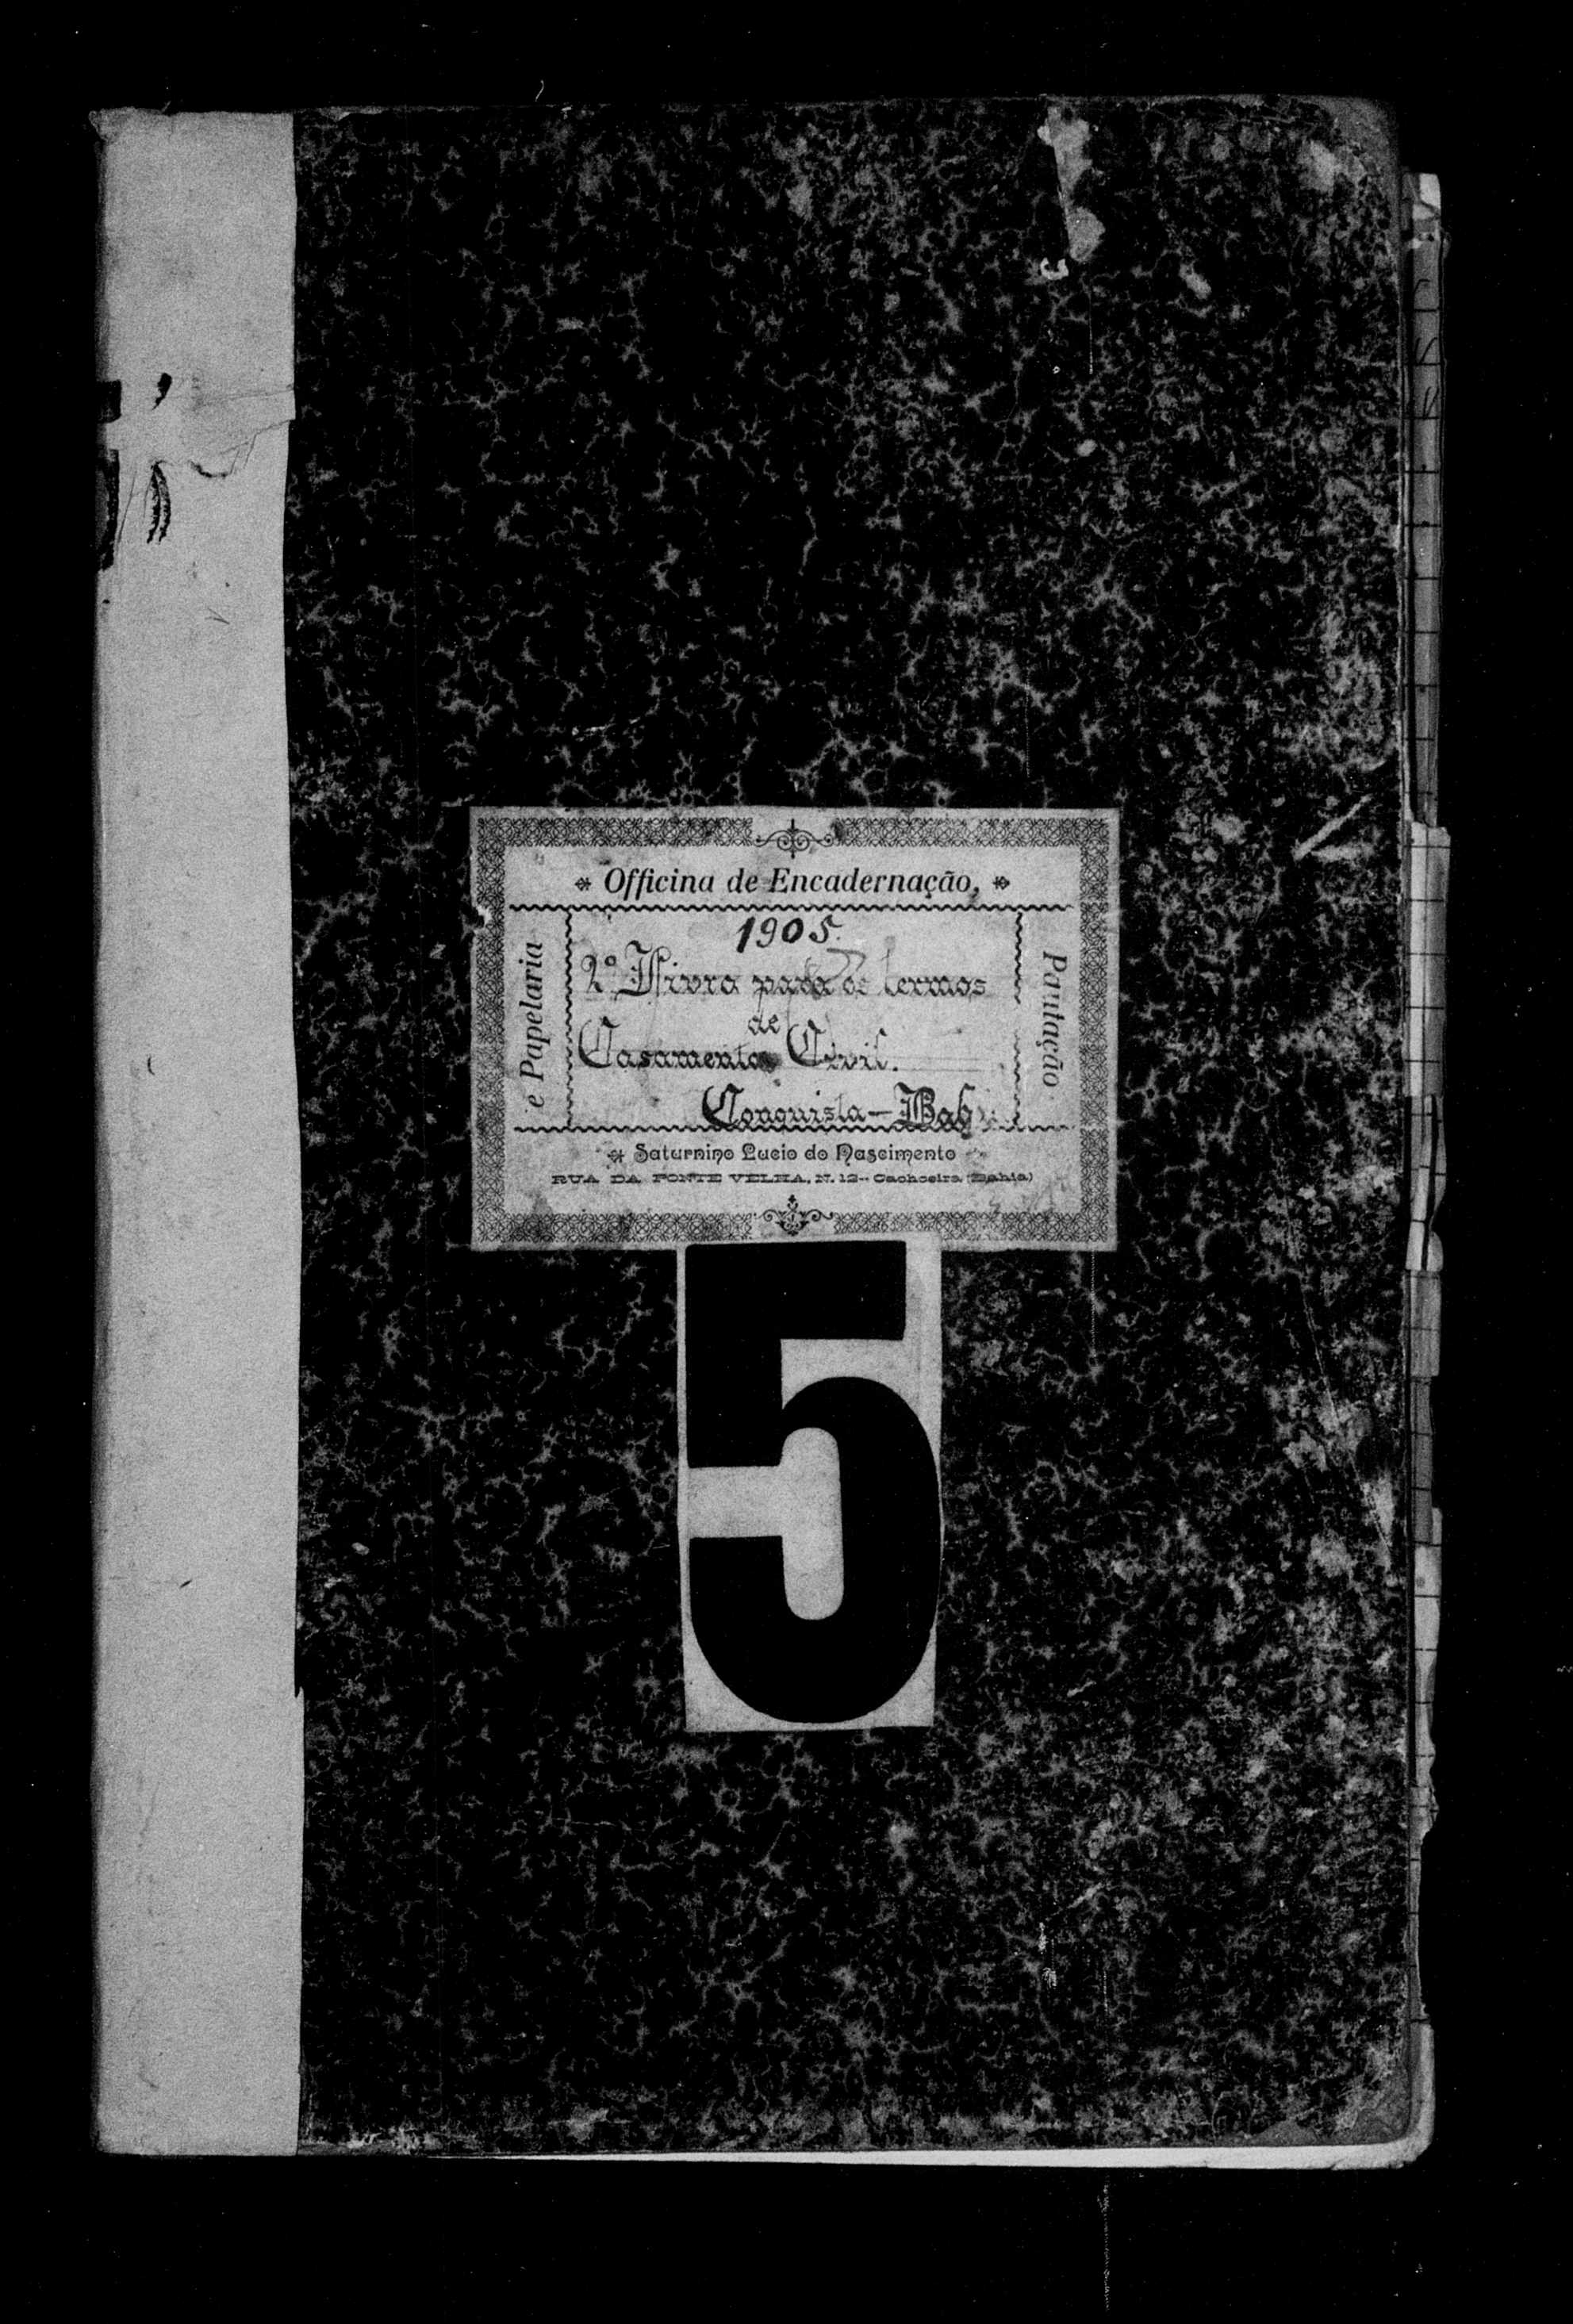 Officina de Encadernação,
e Papelaria
Pautação
1905.
2º Livro para de termos
de
Casamento Civil.
Conquista—Bah
Saturnino Lucio do Nascimento
RUA DA FONTE VELHA, N. 12-- Cachoeira (Bahia)
5